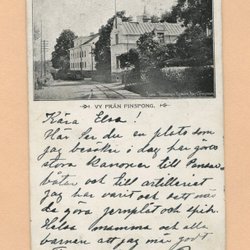 VY FRÅN FINSPONG.
Kära Elsa!
Här ser du en plats som
jag besöker i dag här göres
stora kanoner till Pansar
båtar och till artilleriet
jag har varit och sett när
de göra jernplåt och spik.
Helsa mamma och alla
barnen att jag mår godt